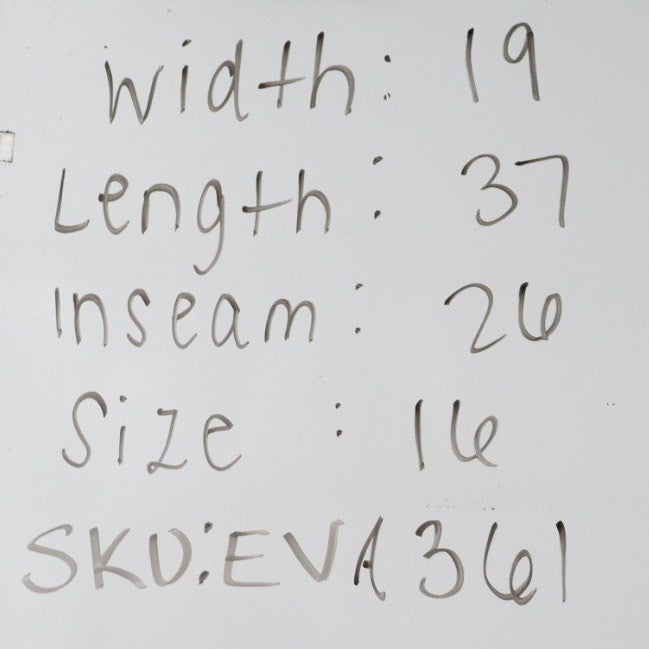 Width: 19
Length: 37
Inseam: 26
Size : 16
SKU:EVA361